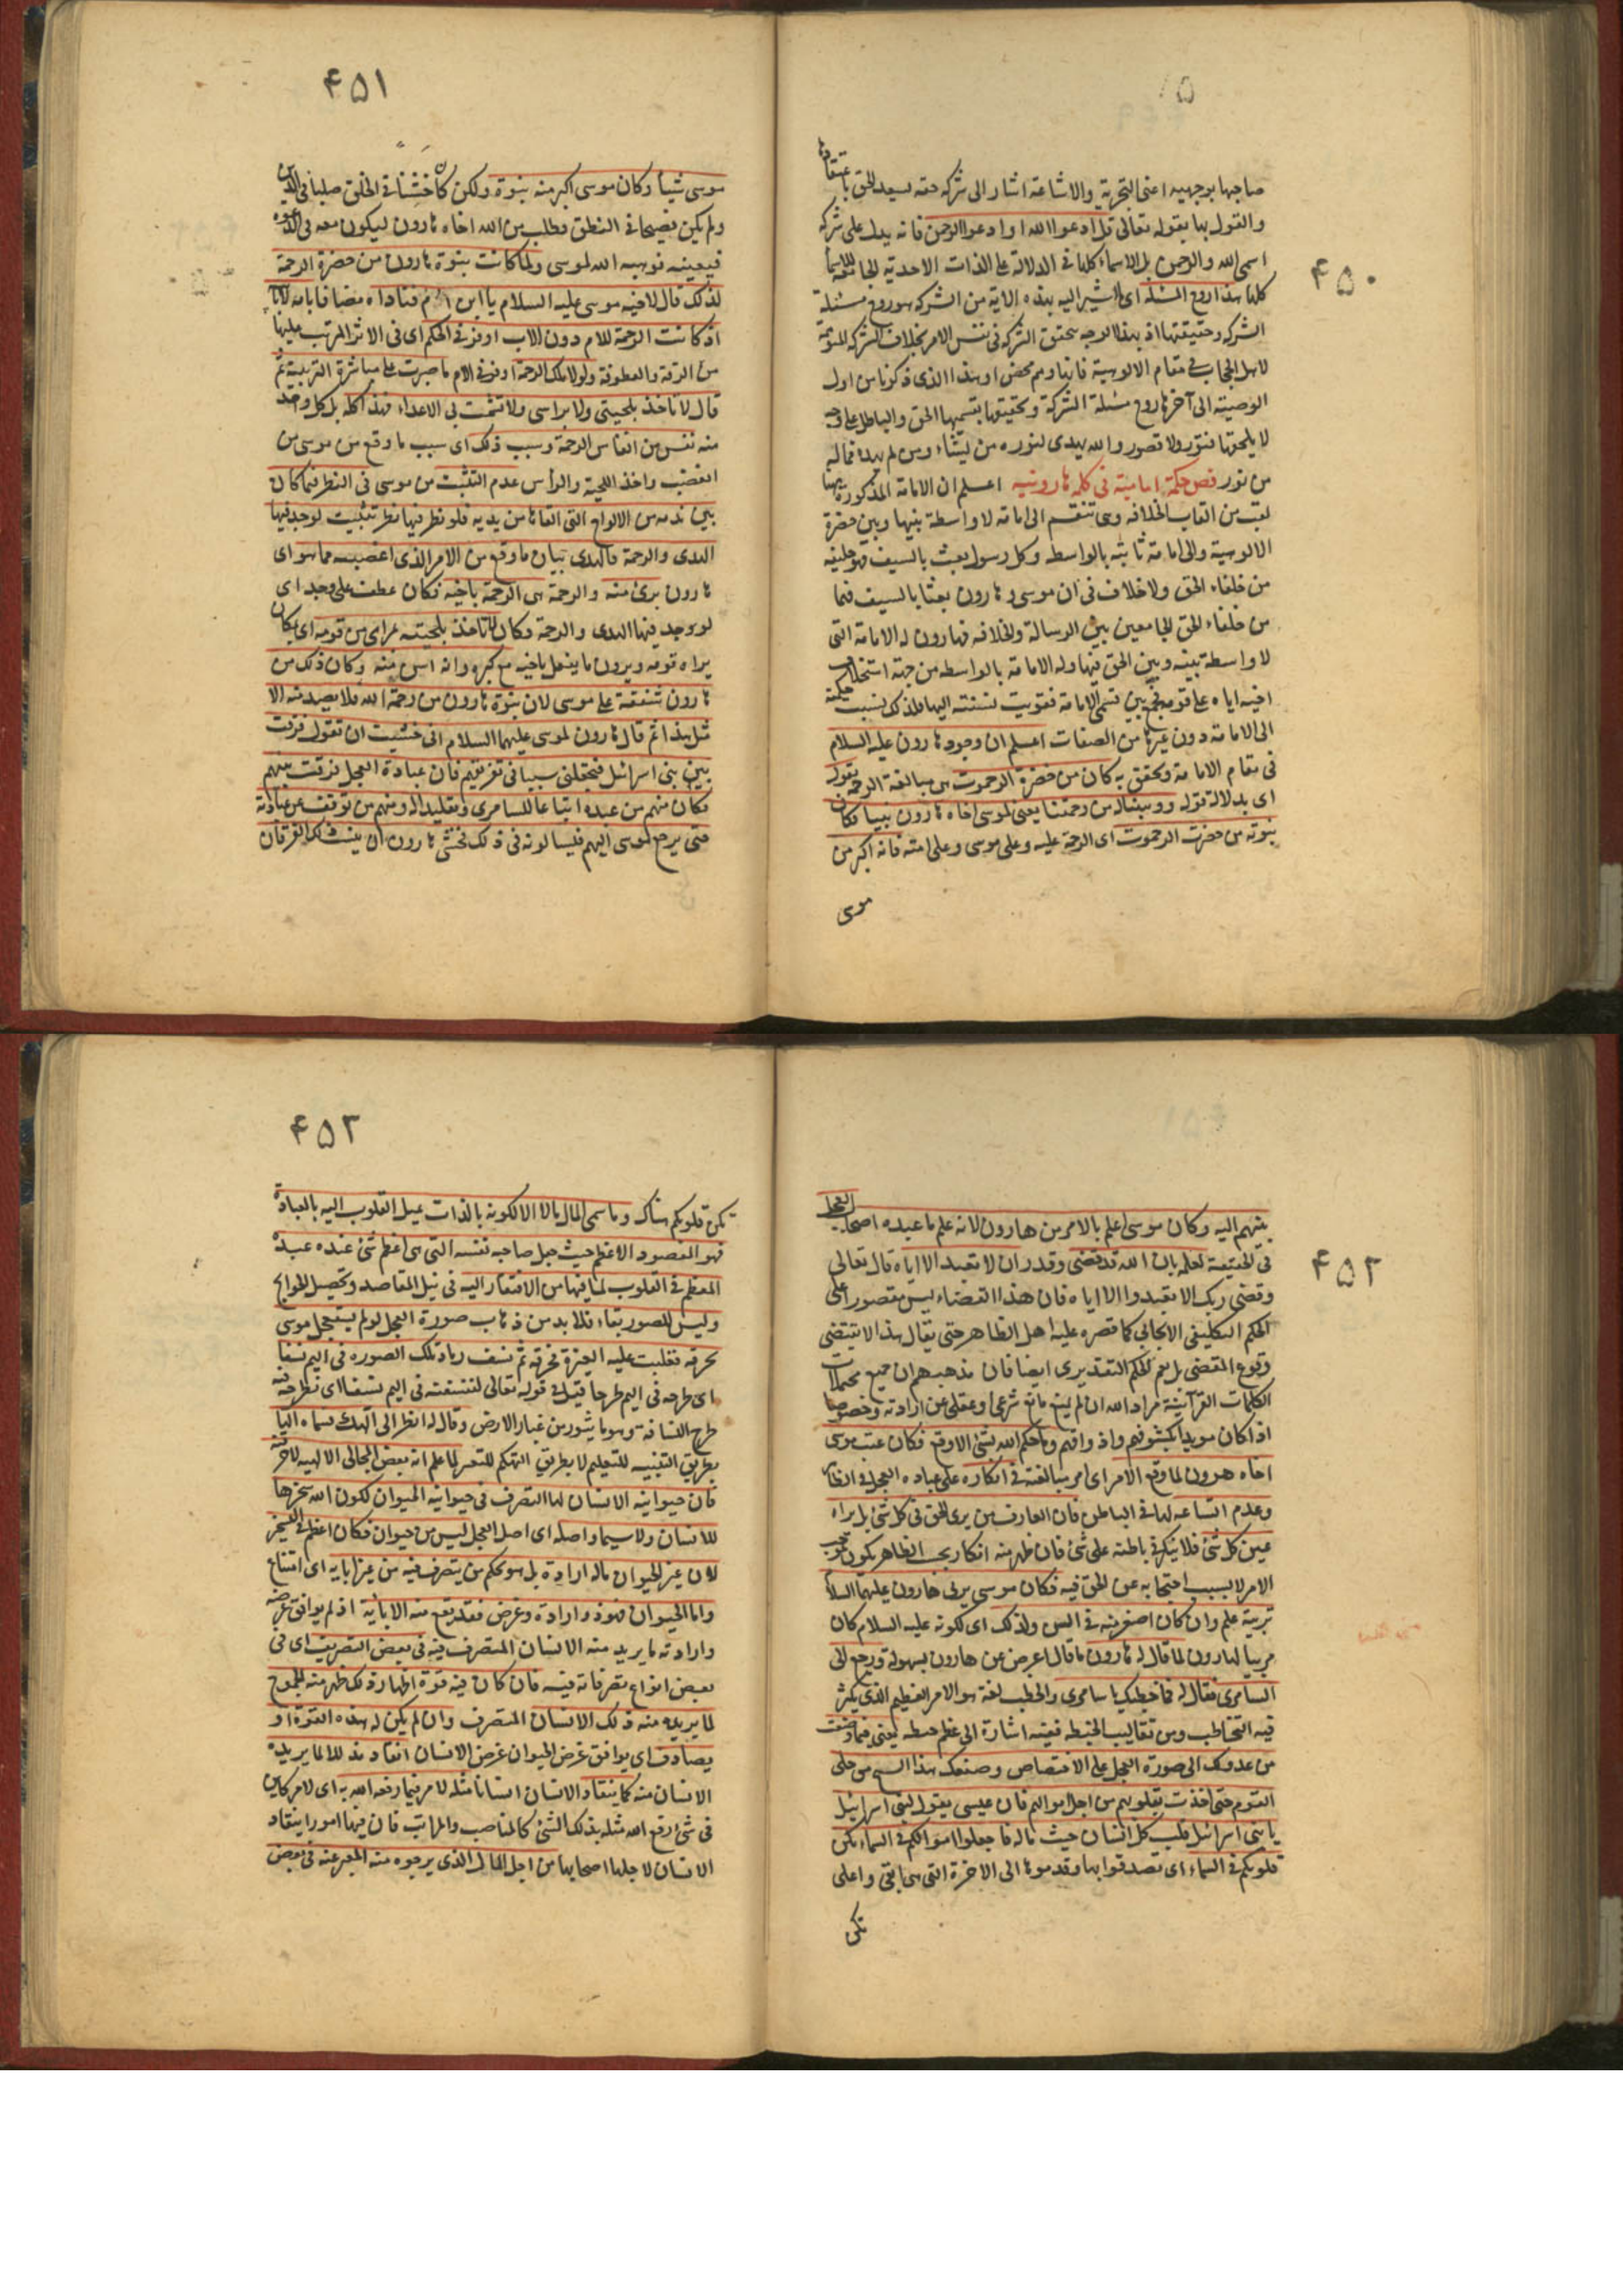 ۴۵۰
صاحبها بوجهيه اعنى التجربة والاشاعة اشار الى شركة حقه ليسعد الحق باعتقادها
والقول بها بقوله تعالى قل ادعوا الله او ادعوا الرحمن فانه يدل على شركة
اسمى الله والرحمن بل الاسماء كلها فى الدلالة على الذات الاحدية الجامعة للاسماء
كلها هذا روح المسئلة اى المشير اليه بهذه الاية من الشركة هو روح مسئلة
الشركة وحقيقتها اذ بهذا الوجه يتحقق الشركة فى نفس الامر بخلاف الشركة المتوهمة
لاهل الحجاب فى مقام الالوهية فانها وهم محض او هذا الذى ذكرنا من اول
الوصية الى آخرها روح مسئلة الشركة وتحقيقها بقسميها الحق والباطل على وجه
لا يلحقها فتور ولا قصور والله يهدى لنوره من يشاء ومن لم يهد فما له
من نور فص حكمة امامية فى كلمة هارونية اعلم ان الامامة المذكورة ههنا
لقب من القاب الخلافة وهى تنقسم الى امامة لا واسطة بينها وبين حضرة
الالوهية والى امامة ثابتة بالواسطة وكل رسول بعث بالسيف فهو خليفة
من خلفاء الحق ولا خلاف فى ان موسى وهارون بعثا بالسيف فهما
من خلفاء الحق الجامعين بين الرسالة والخلافة فهارون له الامامة التى
لا واسطة بينه وبين الحق فيها وله الامامة بالواسطة من جهة استخلاف
اخيه اياه على قومه فجمع بين قسمى الامامة فقويت نسبته اليها فلذلك نسبت حكمته
الى الامامة دون غيرها من الصفات اعلم ان وجود هارون عليه السلام
فى مقام الامامة وتحقق به كان من حضرة الرحموت هى مبالغة الرحمة بقوله
اى بدلالة قوله ووهبنا له من رحمتنا يعنى لموسى اخاه هارون نبيا فكان
نبوته من حضرت الرحموت اى الرحمة عليه وعلى موسى وعلى امته فانه اكبر من
موسى
۴۵۱
موسى شيئا وكان موسى اكبر منه نبوة ولكن كان خشنا فى الخلق صلبا فى الدين
ولم يكن فصيحا فى النطق فطلب من الله اخاه هارون ليكون معه فى الدعوة
فيعينه فوهبه الله لموسى ولما كانت نبوة هارون من حضرة الرحمة
لذلك قال لاخيه موسى عليه السلام يا ابن ام فناداه مضافا بامه لا بابيه
اذ كانت الرحمة للام دون الاب اوفر فى الحكم اى فى الاثر المرتب عليها
من الرقة والعطوفة ولولا تلك الرحمة اوفر فى الام ما صبرت على مباشرة التربية ثم
قال لا تاخذ بلحيتى ولا براسى ولا تشمت بى الاعداء فهذا كله بل كل واحد
منه نفس من انفاس الرحمة وسبب ذلك اى سبب ما وقع من موسى من
الغضب واخذ اللحية والرأس عدم التثبت من موسى فى النظر فيما كان
بين يديه من الالواح التى القاها من يديه فلو نظر فيها نظر تثبيت لوجد فيها
الهدى والرحمة فالهدى بيان ما وقع من الامر الذى اغضبه مما هو اى
هارون برئ منه والرحمة هى الرحمة باخيه فكان عطف على وجد اى
لو وجد فيها الهدى والرحمة وكان لا تاخذ بلحيته بمرأى من قومه اى بمكان
يراه قومه ويرون ما يفعل باخيه مع كبره وانه اسن منه وكان ذلك من
هارون شفقة على موسى لان نبوة هارون من رحمة الله فلا يصدر منه الا
مثل هذا ثم قال هارون لموسى عليهما السلام انى خشيت ان تقول فرقت
بين بنى اسرائيل فتجعلنى سببا فى تفريقهم فان عبادة العجل فرقت بينهم
فكان منهم من عبده اتباعا للسامرى وتقليدا له ومنهم من توقف عن عبادته
حتى يرجع موسى اليهم فيسالونه فى ذلك فخشى هارون ان ينسب ذلك الفرقان
۴۵۲
بينهم اليه وكان موسى اعلم بالامر من هارون لانه علم ما عبده اصحاب العجل
فى الحقيقة لعلمه بان الله قد قضى وقدر ان لا تعبد الا اياه قال تعالى
وقضى ربك الا تعبدوا الا اياه فان هذا القضاء ليس مقصورا على
الحكم التكليفى الايجابى كما قصره عليه اهل الظاهر حتى يقال هذا لا يقتضى
وقوع المقضى بل يعم الحكم التقديرى ايضا فان مذهبهم ان جميع محتملات
الكلمات القرآنية مراد الله ان لم يمنع مانع شرعى او عقلى عن ارادته وخصوصا
اذا كان مويدا بكشوفهم واذواقهم وما حكم الله بشئ الا وقع فكان عتب موسى
اخاه هرون لما وقع الامر اى امر مبالغته فى انكاره على عبادة العجل فى الظاهر
وعدم اتساعه لها فى الباطن فان العارف من يرى الحق فى كل شئ بل يراه
عين كل شئ فلا ينكر فى باطنه على شئ فان ظهر منه انكار بحسب الظاهر يكون بموجب
الامر لا بسبب احتجابه عن الحق فيه فكان موسى يربى هارون عليهما السلام
تربية علم وان كان اصغر منه فى السن ولذلك اى لكونه عليه السلام كان
مربيا لهارون لما قال له هارون ما قال اعرض عن هارون بسهولة ورجع الى
السامرى فقال له فما خطبك يا سامرى والخطب لغة هو الامر العظيم الذى يكثر
فيه التخاطب ومن تقاليب الخبط ففيه اشارة الى عظم خبطه يعنى فيما صنعت
من عدولك الى صورة العجل على الاختصاص وصنعك هذا الشبح من حلى
القوم حتى اخذت بقلوبهم من اجل اموالهم فان عيسى يقول لبنى اسرائيل
يا بنى اسرائيل قلب كل انسان حيث ماله فاجعلوا اموالكم فى السماء تكن
قلوبكم فى السماء اى تصدقوا بها وقدموها الى الاخرة التى هى ابقى واعلى
تكن
۴۵۳
تكن قلوبكم هناك وما سمى المال مالا الا لكونه بالذات تميل القلوب اليه بالعبادة
فهو المقصود الاعظم حيث جعل صاحبه نفسه التى هى اعظم شئ عنده عبده
المعظم فى القلوب لما فيها من الافتقار اليه فى نيل المقاصد وتحصيل الحوائج
وليس للصور بقاء فلا بد من ذهاب صورة العجل لو لم يستعجل موسى
بحرقه فغلبت عليه الغيرة فحرقه ثم نسف رماد تلك الصورة فى اليم نسفا
اى طرحه فى اليم طرحا قيل فى قوله تعالى لننسفنه فى اليم نسفا اى نطرحنه فيه
طرح النسافة وهو ما يثور من غبار الارض وقال له انظر الى الهك فسماه الها
بطريق التنبيه للتعليم لا بطريق التهكم للتعير لما علم انه بعض المجالى الالهية لاحرقنه
فان حيوانية الانسان لها التصرف فى حيوانية الحيوان لكون الله سخرها
للانسان ولا سيما واصله اى اصل العجل ليس من حيوان فكان اعظم فى التسخير
لان غير الحيوان ماله ارادة بل هو بحكم من يتصرف فيه من غير اباية اى امتناع
واما الحيوان فهو ذو ارادة وغرض فقد يقع منه الاباية اذ لم يوافق غرضه
وارادته ما يريد منه الانسان المتصرف فيه فى بعض التصريف اى فى
بعض انواع تصرفاته فيه فان كان فيه قوة اظهار ذلك ظهر منه الجموح
لما يريده منه ذلك الانسان المتصرف وان لم يكن له هذه القوة او
يصادف اى يوافق غرض الحيوان غرض الانسان انقاد مذللا لما يريده
الانسان منه كما ينقاد الانسان انسانا مثله لامر فيما رفعه الله به اى لامر كاين
فى شئ رفع الله مثله بذلك الشئ كالمناصب والمراتب فان فيها امورا ينقاد
الانسان لاجلها اصحابها من اجل المال الذى يرجوه منه المعبر عنه فى بعض